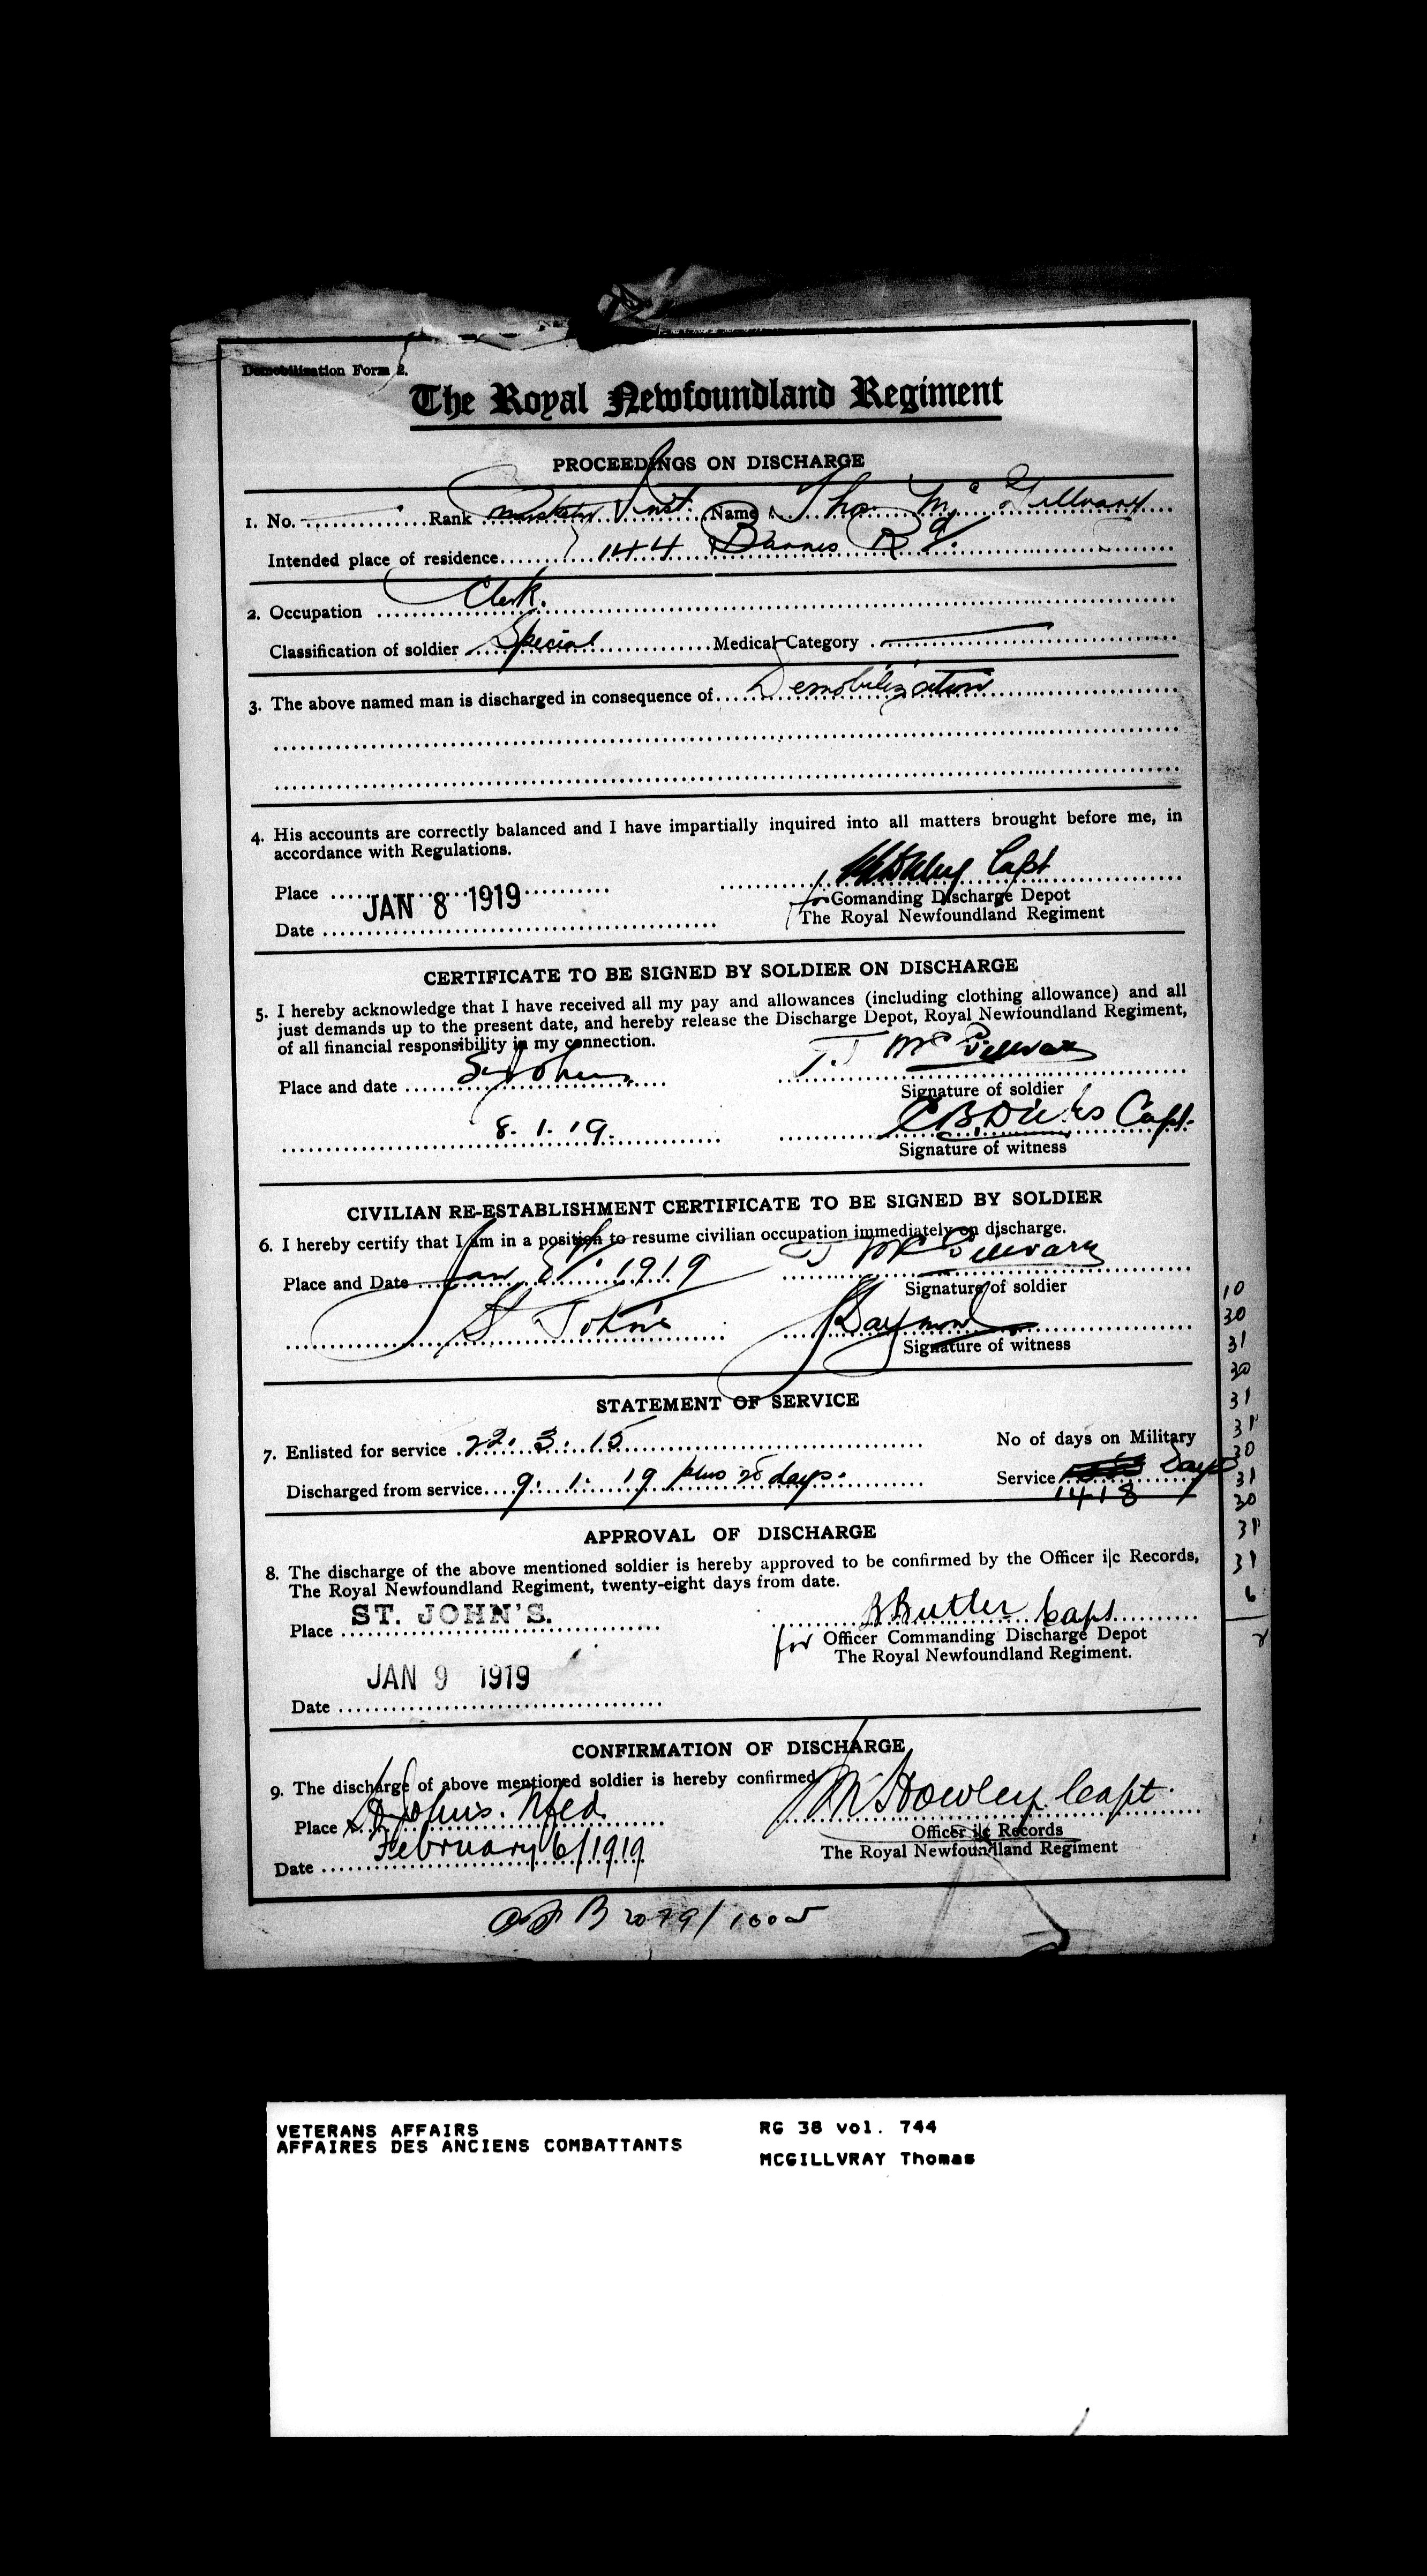 Demobilization Form 2.
The Royal Newfoundland Regiment
PROCEEDINGS ON DISCHARGE
1. No. Rank Inst. Name Thos. McGillvary
Intended place of residence 144 Barnes Rd.
2. Occupation Clerk.
Classification of soldier Special Medical Category
3. The above named man is discharged in consequence of Demobilization
4. His accounts are correctly balanced and I have impartially inquired into all matters brought before me, in
accordance with Regulations.
Capt
Place
JAN 8 1919
for Comanding Discharge Depot
Date
The Royal Newfoundland Regiment
CERTIFICATE TO BE SIGNED BY SOLDIER ON DISCHARGE
5. I hereby acknowledge that I have received all my pay and allowances (including clothing allowance) and all
just demands up to the present date, and hereby release the Discharge Depot, Royal Newfoundland Regiment,
of all financial responsibility in my connection.
Place and date St Johns T. J McGillvary
Signature of soldier
8. 1. 19. C B Dicks Capt.
Signature of witness
CIVILIAN RE-ESTABLISHMENT CERTIFICATE TO BE SIGNED BY SOLDIER
6. I hereby certify that I am in a position to resume civilian occupation immediately on discharge.
Place and Date Jan 8th 1919 T McGillvary
Signature of soldier
St John's
Signature of witness
STATEMENT OF SERVICE
7. Enlisted for service 22. 3. 15 No of days on Military
Discharged from service 9. 1. 19 plus 28 days. Service Days
1418
APPROVAL OF DISCHARGE
8. The discharge of the above mentioned soldier is hereby approved to be confirmed by the Officer i|c Records,
The Royal Newfoundland Regiment, twenty-eight days from date.
Place ST. JOHN'S. Butler Capt
for Officer Commanding Discharge Depot
The Royal Newfoundland Regiment.
JAN 9 1919
Date
CONFIRMATION OF DISCHARGE
9. The discharge of above mentioned soldier is hereby confirmed
Place St Johns. Nfld. Howley Capt.
Officer i|c Records
Date February 6/1919
The Royal Newfoundland Regiment
B 2079/1005
10
30
31
30
31
31
30
31
30
31
31
6
VETERANS AFFAIRS
AFFAIRES DES ANCIENS COMBATTANTS
RG 38 vol. 744
MCGILLVRAY Thomas